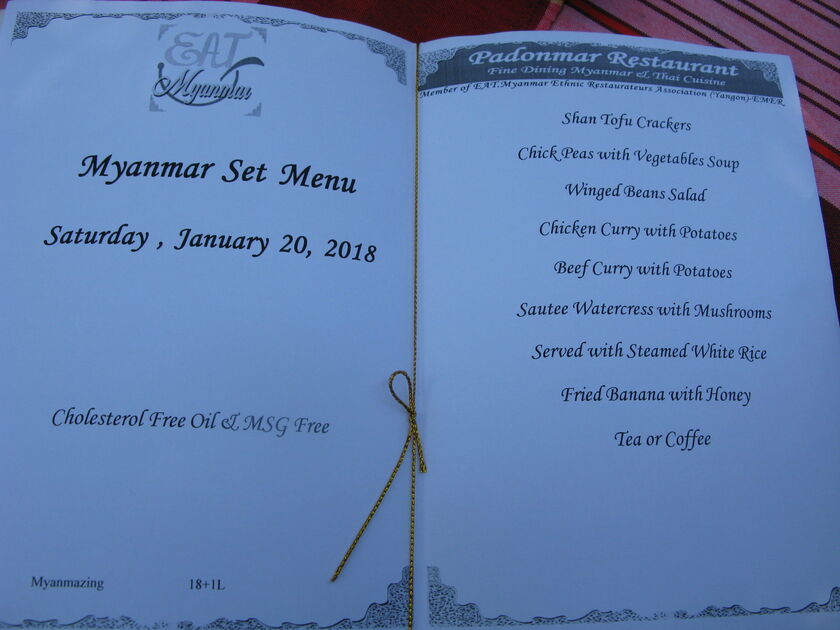 EAT
Myanmar
Myanmar Set Menu
Saturday , January 20, 2018
Cholesterol Free Oil & MSG Free
Myanmazing 18+1L
Padonmar Restaurant
Fine Dining Myanmar & Thai Cuisine
Member of EAT.Myanmar Ethnic Restaurateurs Association (Yangon)-EMER
Shan Tofu Crackers
Chick Peas with Vegetables Soup
Winged Beans Salad
Chicken Curry with Potatoes
Beef Curry with Potatoes
Sautee Watercress with Mushrooms
Served with Steamed White Rice
Fried Banana with Honey
Tea or Coffee